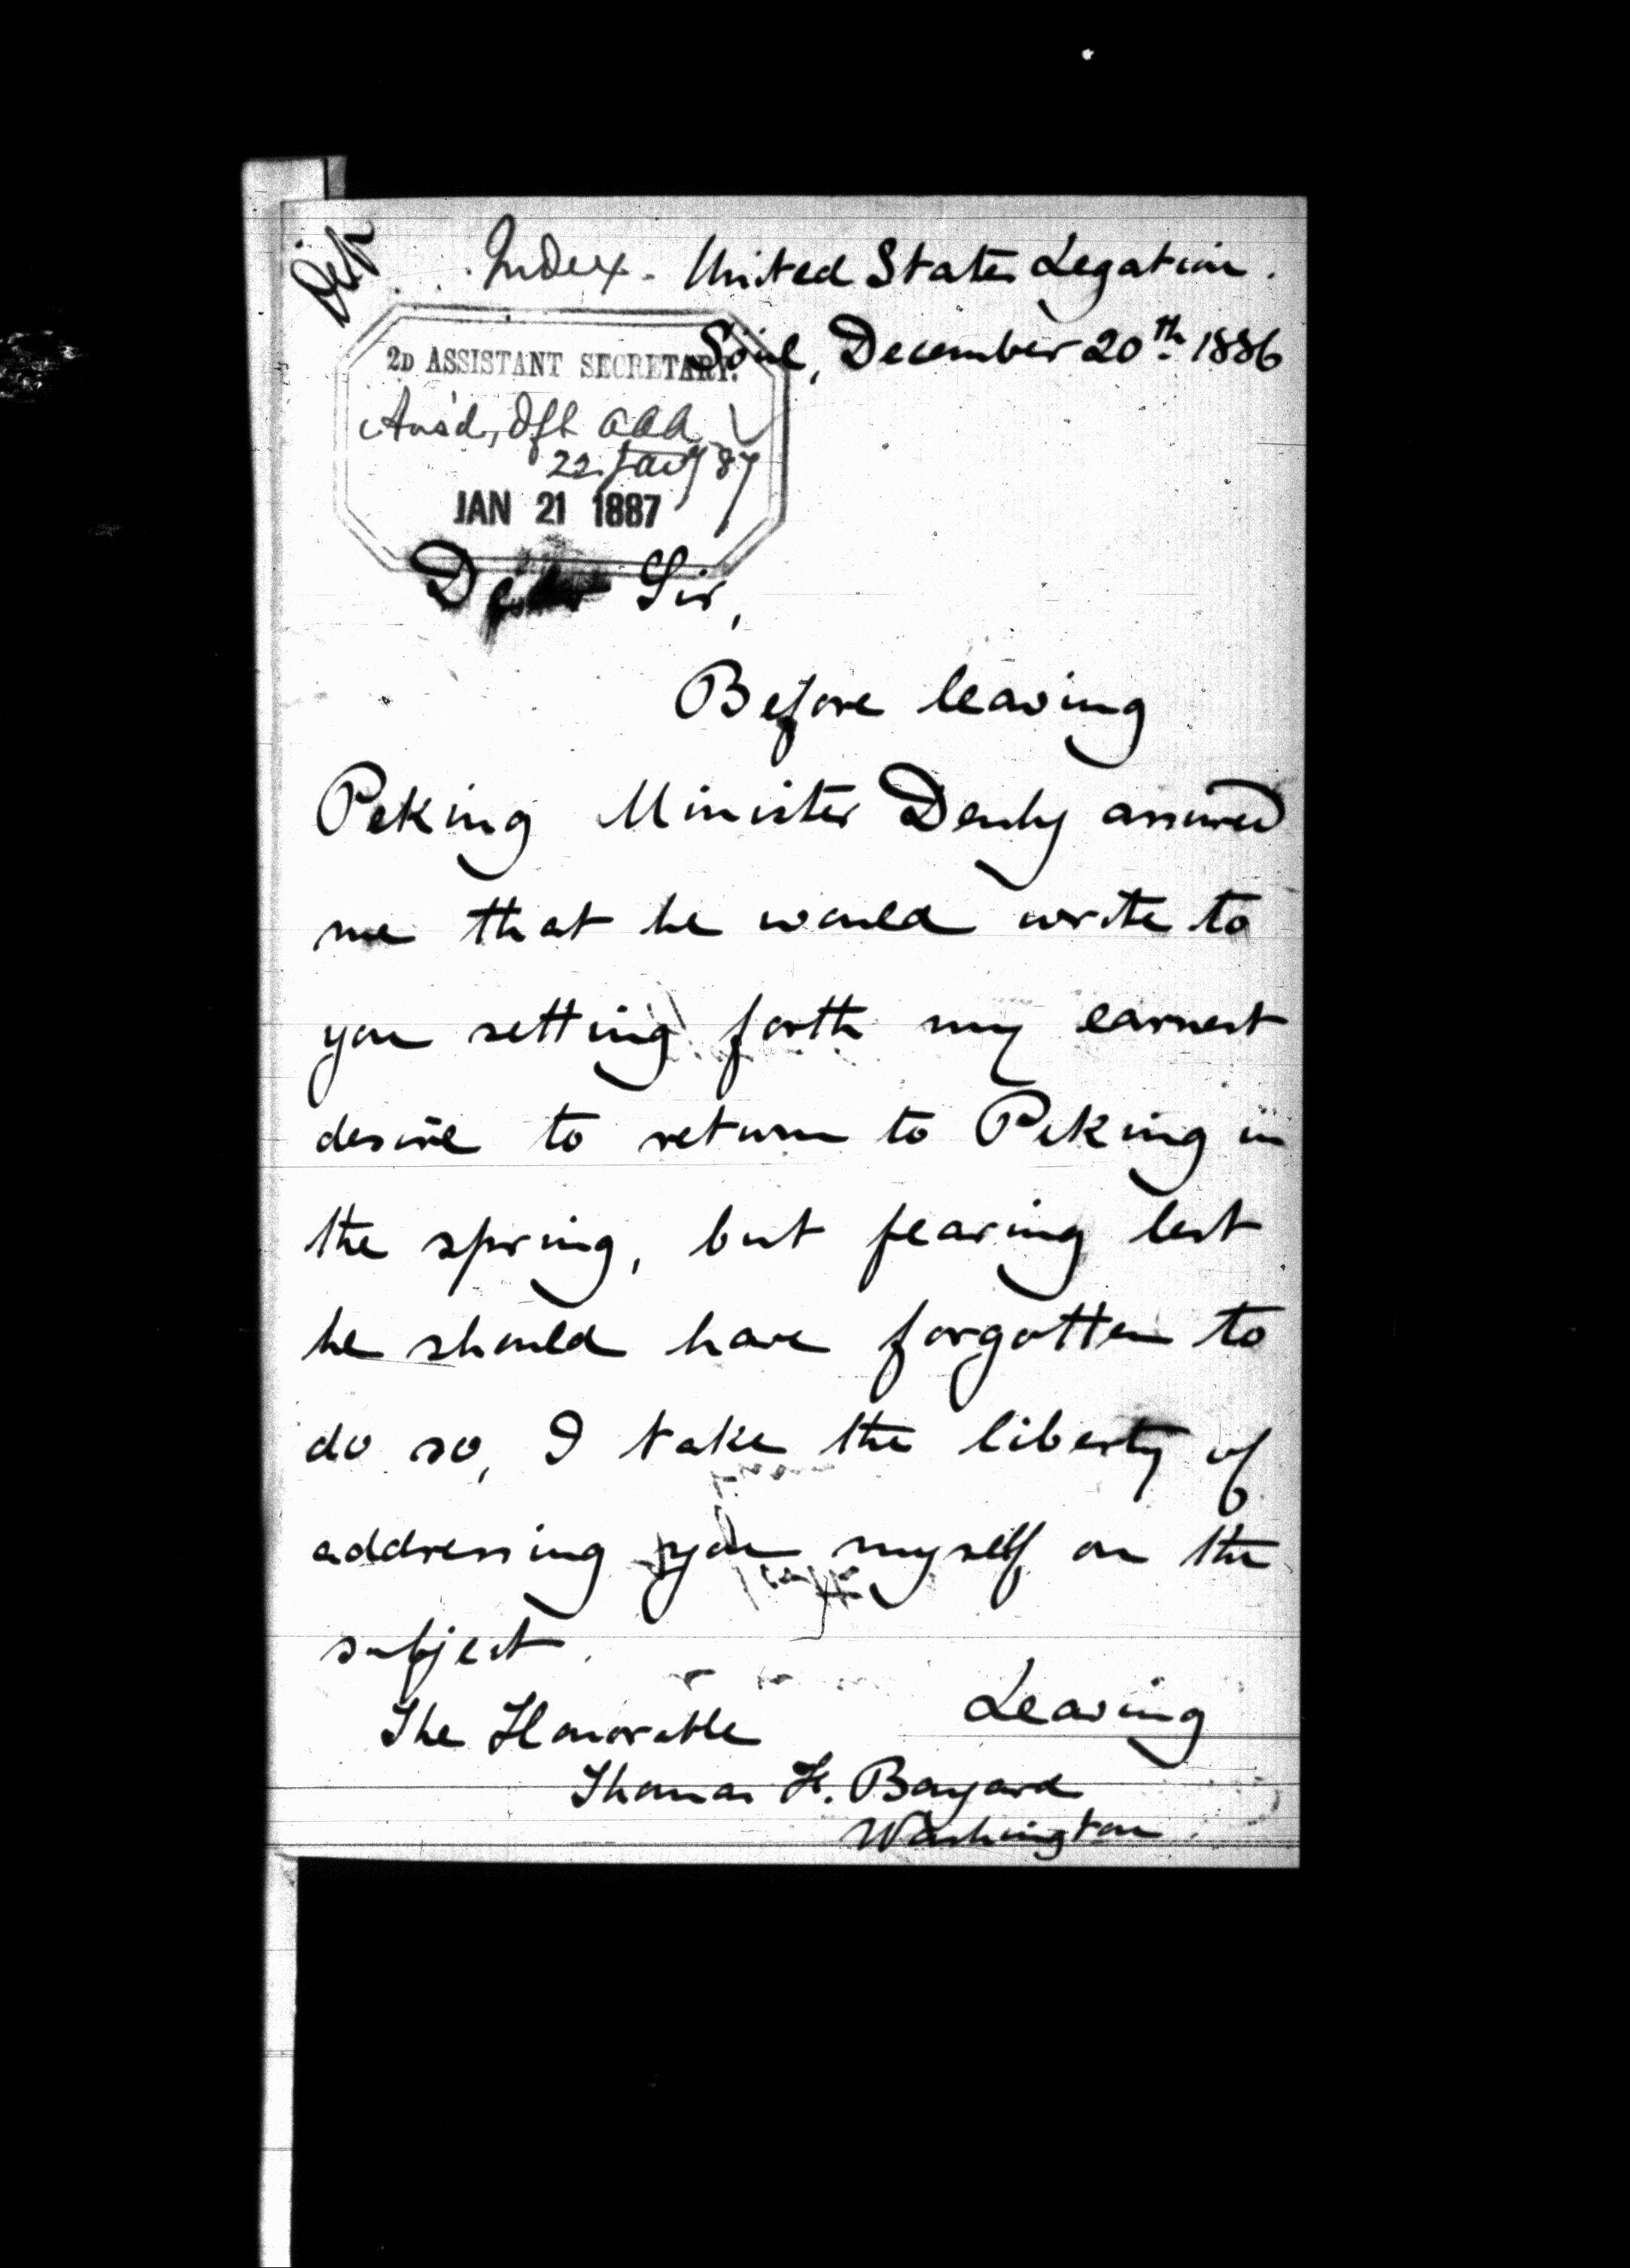 Dip
Index. United States Legation.
Söul, December 20th 1886
2D ASSISTANT SECRETARY.
Ans'd, Dft aaa
22 Jany 87
JAN 21 1887
Dear Sir,
Before leaving
Peking Minister Denby assured
me that he would write to
you setting forth my earnest
desire to return to Peking in
the spring, but fearing lest
he should have forgotten to
do so, I take the liberty of
addressing you myself on the
subject.
Leaving
The Honorable
Thomas F. Bayard
Washington.